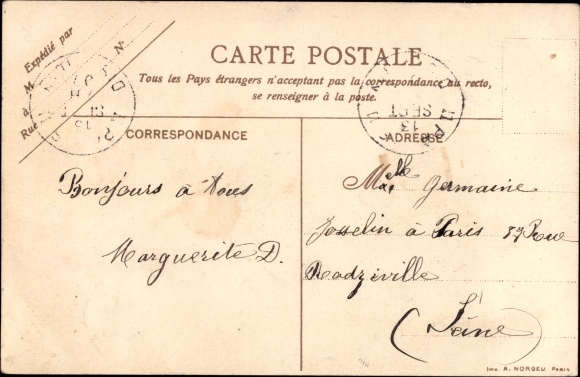 Expédié par
M
à
Rue
N°
CARTE POSTALE
Tous les Pays étrangers n'acceptant pas la correspondance au recto,
se renseigner à la poste.
CORRESPONDANCE
ADRESSE
13
SEPT
Bonjours à tous
Marguerite D.
Melle Germaine
Josselin à Paris 87 Rue
Radziville
(Seine)
Imp. A. NORGEU PARIS